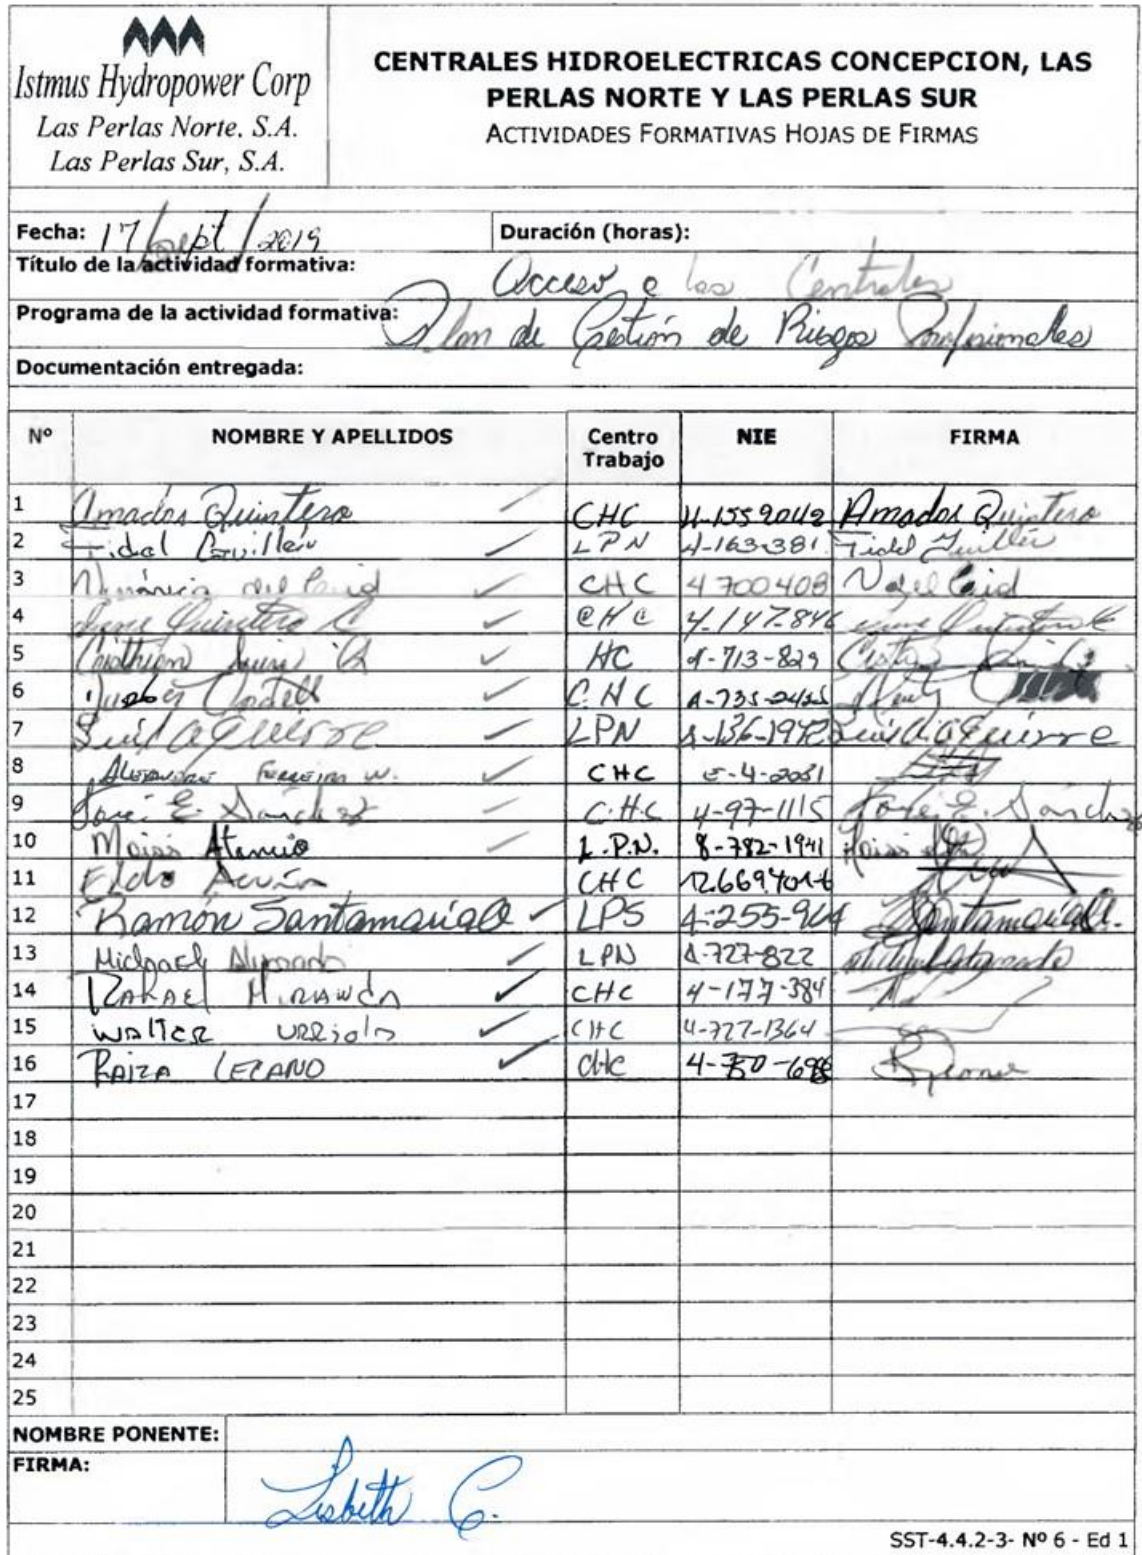 Istmus Hydropower Corp
Las Perlas Norte, S.A.
Las Perlas Sur, S.A.
CENTRALES HIDROELECTRICAS CONCEPCION, LAS
PERLAS NORTE Y LAS PERLAS SUR
ACTIVIDADES FORMATIVAS HOJAS DE FIRMAS
Fecha: 17/sept/2019 Duración (horas):
Título de la actividad formativa: Acceso a las Centrales
Programa de la actividad formativa: Plan de Gestión de Riesgos Profesionales
Documentación entregada:
Nº NOMBRE Y APELLIDOS Centro Trabajo NIE FIRMA
1 Amador Quintero CHC Amador Quintero
2 Fidel Guillén LPN 4-163-381 Fidel Guillén
3 del Cid CHC 4 700408 V del Cid
4 Quintero C CHC 4-147-846 Quintero C
5 HC 4-713-829
6 C.H.C
7 Luis Aguirre LPN Luis Aguirre
8 Alexandre Ferreira W. CHC E-4-2031
9 José E. Sánchez C.H.C 4-97-1115 José E. Sánchez
10 Moises Atencio L.P.N. 8-782-1941 Moises
11 CHC
12 Ramón Santamaría LPS Santamaría
13 Michael Alvarado LPN 4-727-822
14 Rafael Miranda CHC 4-177-384
15 Walter Urriola CHC 4-727-1364
16 Raiza Lezcano CHC
17
18
19
20
21
22
23
24
25
NOMBRE PONENTE:
FIRMA: Lisbeth C.
SST-4.4.2-3- Nº 6 - Ed 1